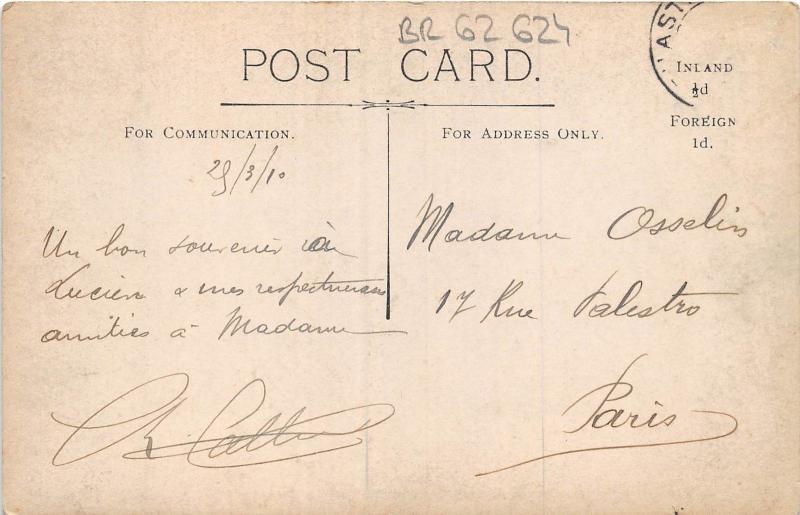 BR 62 624
POST CARD.
INLAND
½d
FOREIGN
1d.
FOR COMMUNICATION.
FOR ADDRESS ONLY.
/3/10
Un bon souvenir à
Lucien & mes respectueuses
amitiés à Madame
Madame Osselin
17 Rue Palestro
Paris